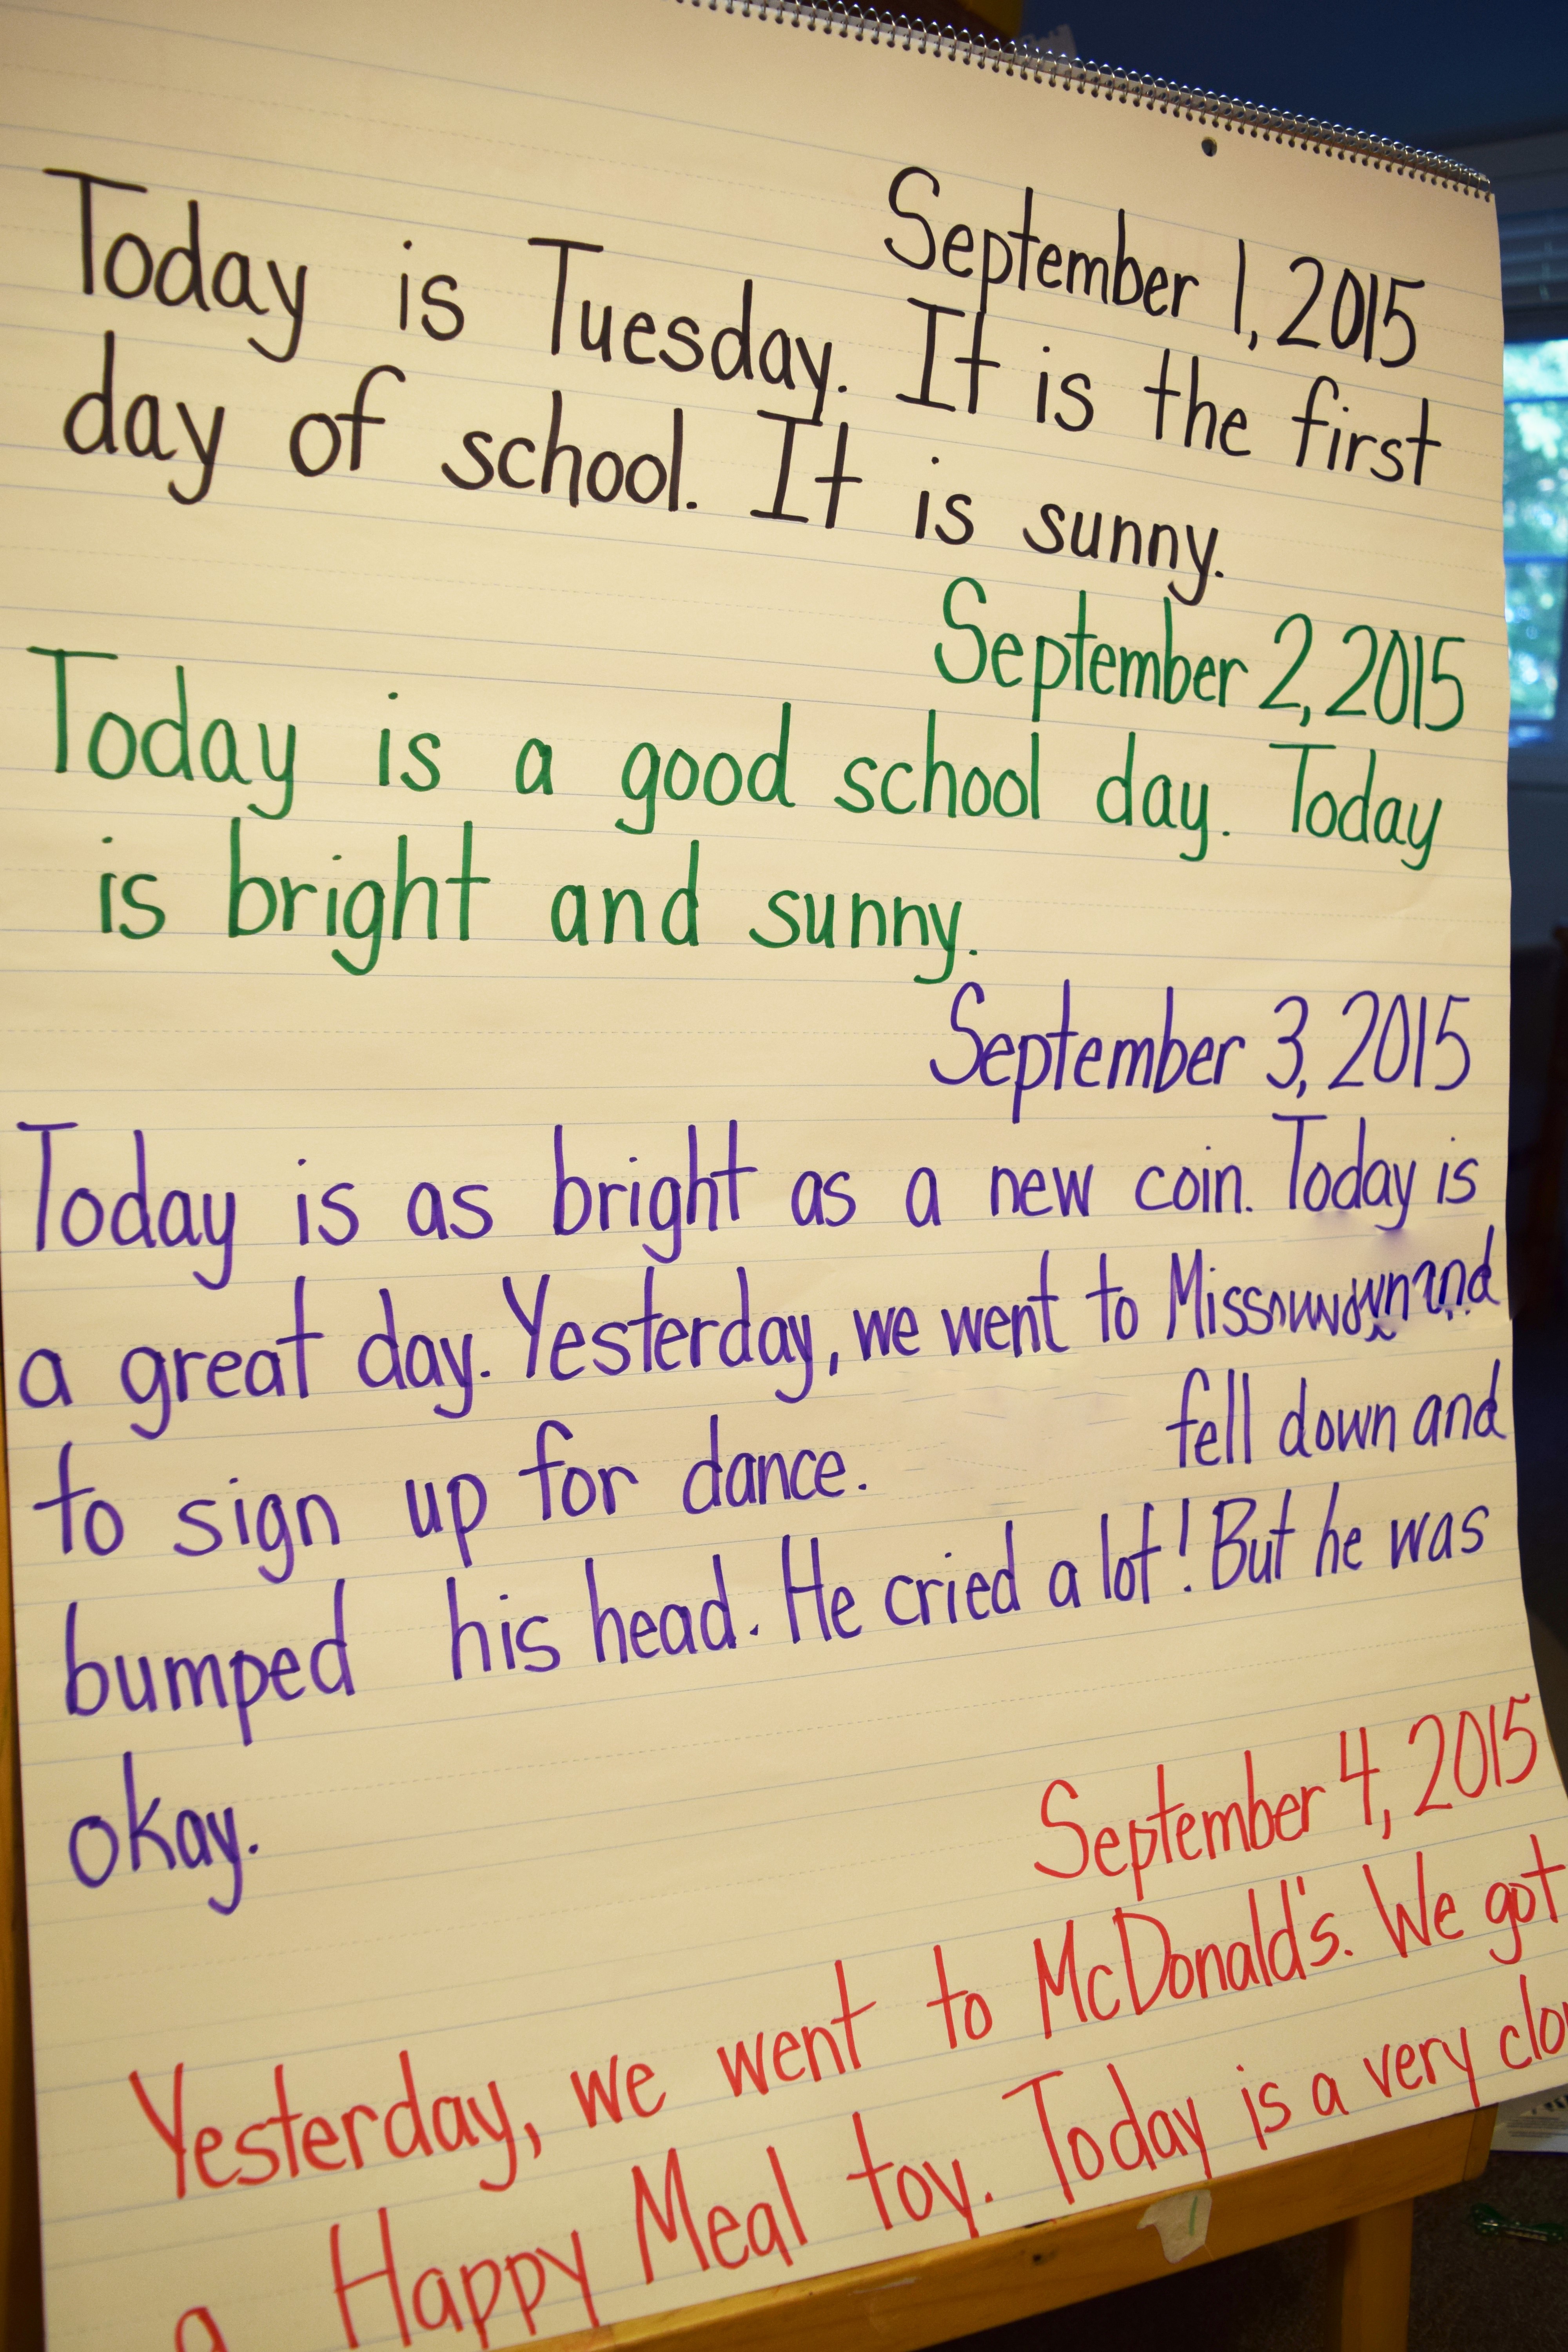 September 1, 2015
Today is Tuesday. It is the first
day of school. It is sunny.
September 2, 2015
Today is a good school day. Today
is bright and sunny.
September 3, 2015
Today is as bright as a new coin. Today is
a great day. Yesterday, we went to
to sign up for dance. fell down and
bumped his head. He cried a lot! But he was
okay.
September 4, 2015
Yesterday, we went to McDonald's. We got
a Happy Meal toy. Today is a very